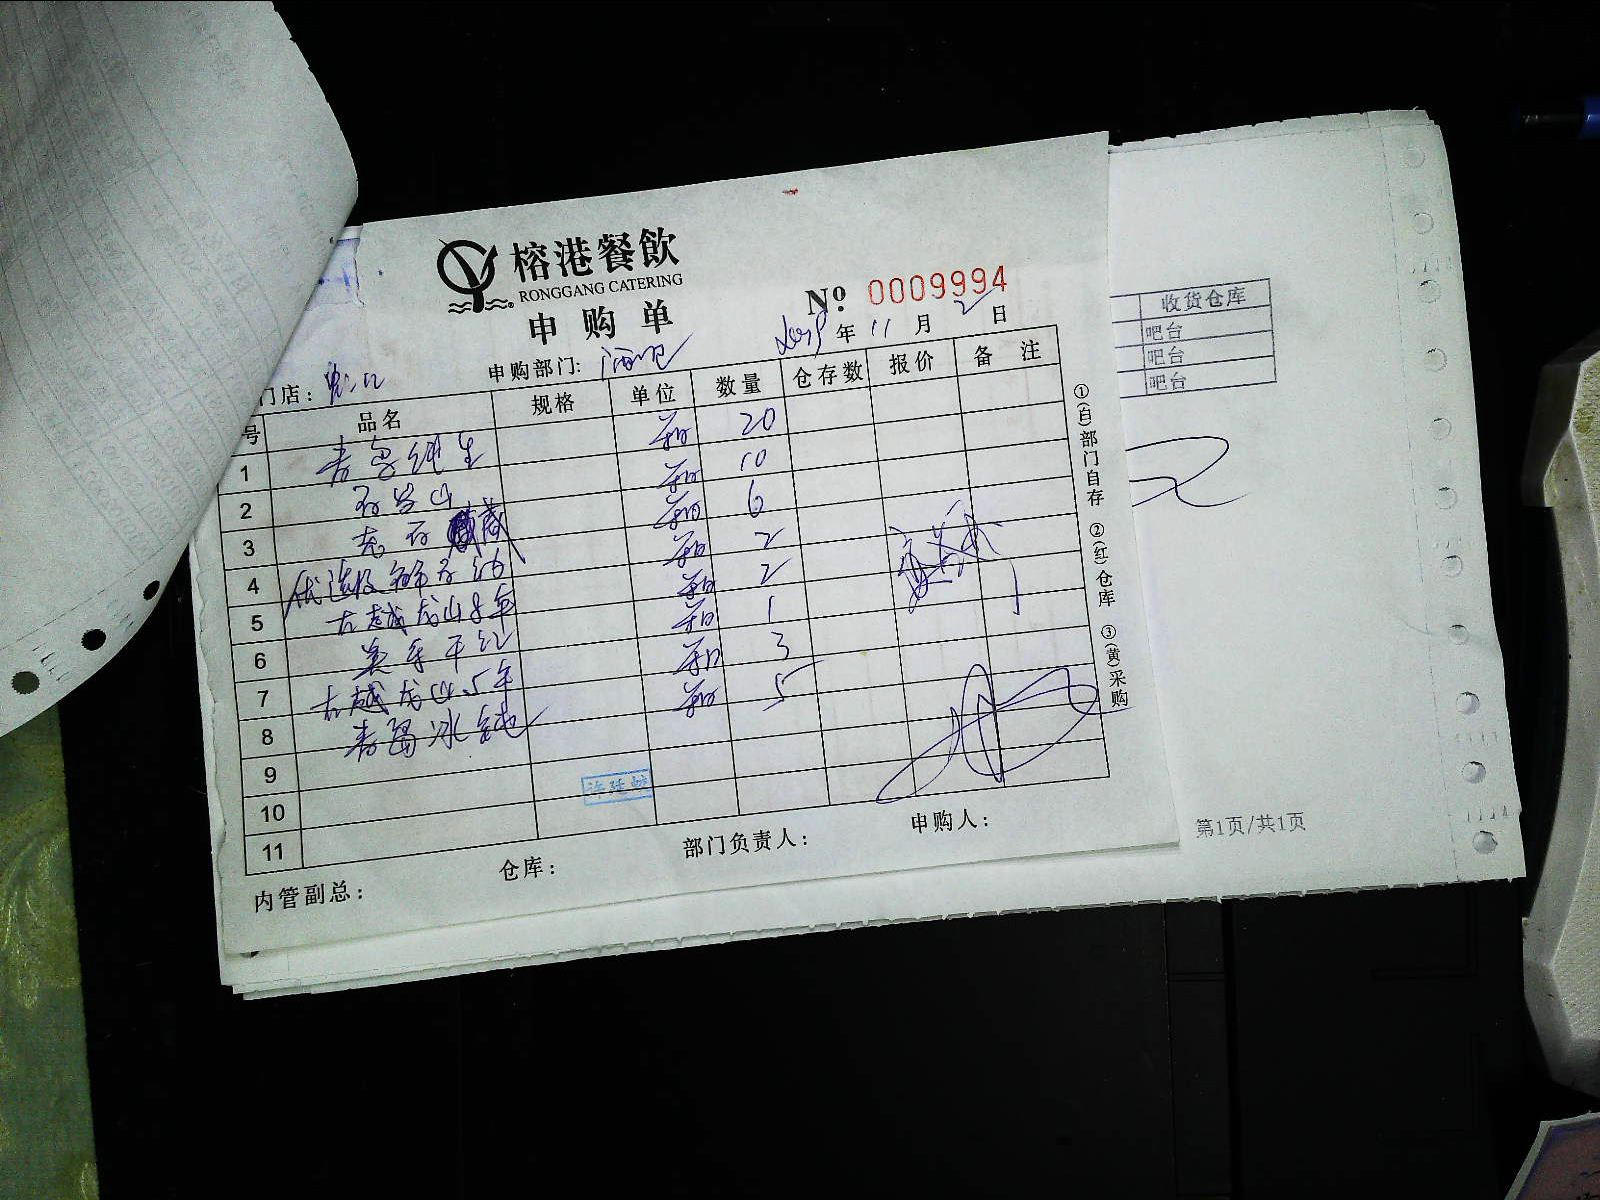 榕港餐飲
RONGGANG CATERING
申购单
№ 0009994
年 11 月 2 日
门店：
申购部门: 酒吧
号 品名 规格 单位 数量 仓存数 报价 备注
1 青岛纯生 箱 20
2 石谷山 箱 10
3 老石 藏 箱 6
4 优选级 箱 2
5 古越龙山8年 箱 2
6 干红 箱 1
7 古越龙山5年 箱 3
8 青岛冰纯 箱 5
9
10
11
内管副总：
仓库：
部门负责人：
申购人：
①(白)部门自存 ②(红)仓库 ③(黄)采购
收货仓库
吧台
吧台
吧台
第1页/共1页